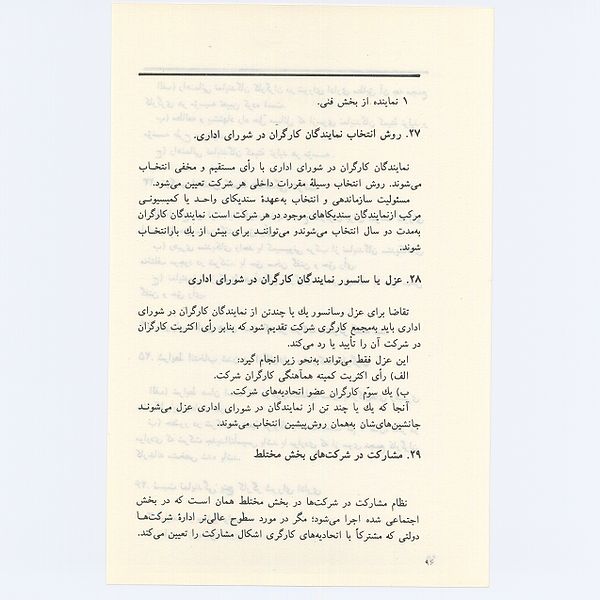 ۱ نماینده از بخش فنی.
۲۷. روش انتخاب نمایندگان کارگران در شورای اداری.
نمایندگان کارگران در شورای اداری با رأی مستقیم و مخفی انتخاب
می‌شوند. روش انتخاب وسیلهٔ مقررات داخلی هر شرکت تعیین می‌شود.
مسئولیت سازماندهی و انتخاب به‌عهدهٔ سندیکای واحد یا کمیسیونی
مرکب ازنمایندگان سندیکاهای موجود در هر شرکت است. نمایندگان کارگران
به‌مدت دو سال انتخاب می‌شوندو می‌توانند برای بیش از یك بارانتخاب
شوند.
۲۸. عزل یا سانسور نمایندگان کارگران در شورای اداری
تقاضا برای عزل وسانسور یك یا چندتن از نمایندگان کارگران در شورای
اداری باید به‌مجمع کارگری شرکت تقدیم شود که بنابر رأی اکثریت کارگران
در شرکت آن را تأیید یا رد می‌کند.
این عزل فقط می‌تواند به‌نحو زیر انجام گیرد:
الف) رأی اکثریت کمیته هم‌آهنگی کارگران شرکت.
ب) یك سوّم کارگران عضو اتحادیه‌های شرکت.
آنجا که یك یا چند تن از نمایندگان در شورای اداری عزل می‌شوند
جانشین‌های‌شان به‌همان روش‌پیشین انتخاب می‌شوند.
۲۹. مشارکت در شرکت‌های بخش مختلط
نظام مشارکت در شرکت‌ها در بخش مختلط همان است که در بخش
اجتماعی شده اجرا می‌شود؛ مگر در مورد سطوح عالی‌تر ادارهٔ شرکت‌ها
دولتی که مشترکاً با اتحادیه‌های کارگری اشکال مشارکت را تعیین می‌کند.